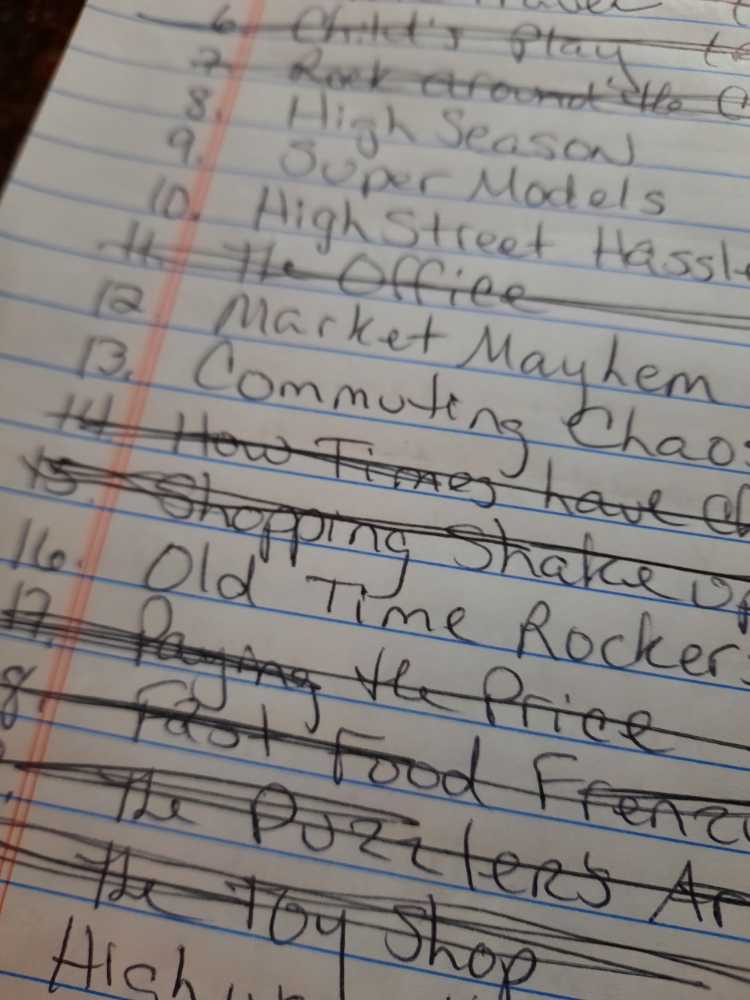 6. Child's Play
7. Rock around the
8. High Season
9. Super Models
10. High Street Hassle
11. The Office
12. Market Mayhem
13. Commuting Chaos
14. How Times have
15. Shopping Shake up
16. Old Time Rockers
17. Paying the Price
8. Fast Food Frenzi
The Puzzlers Ar
The Toy Shop